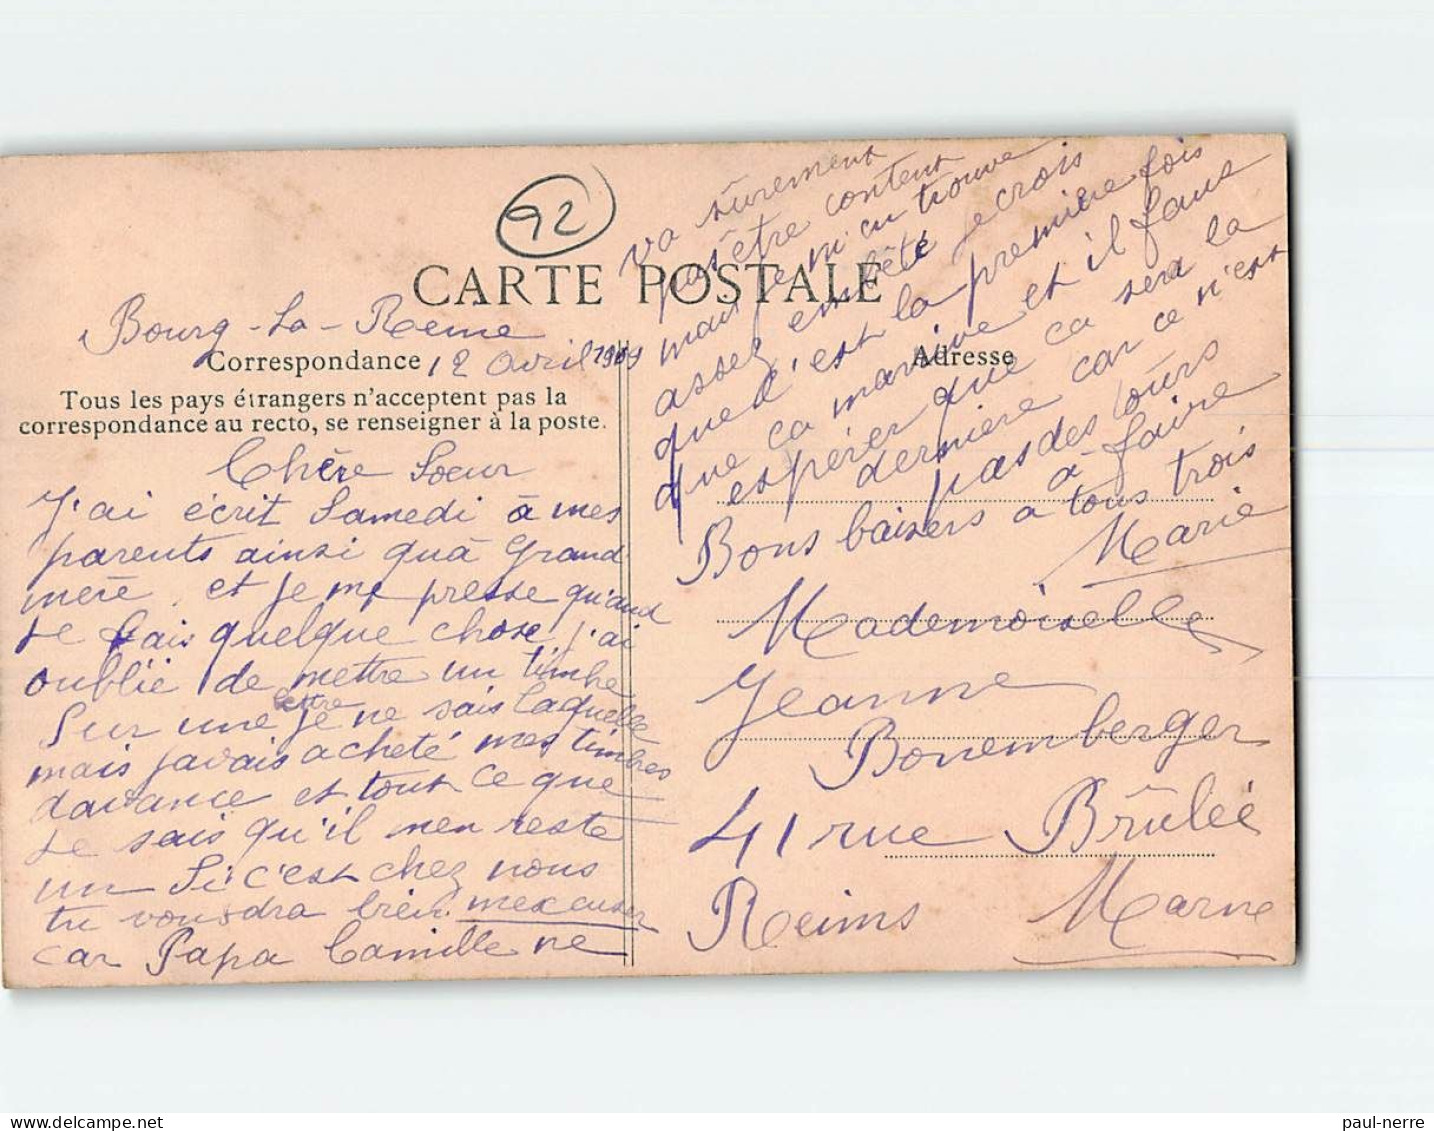 92
CARTE POSTALE
Bourg-la-Reine
Correspondance
12 Avril 1909
Tous les pays étrangers n'acceptent pas la
correspondance au recto, se renseigner à la poste.
Chère Soeur
J'ai écrit Samedi à mes
parents ainsi quà Grand
mère et je me presse quand
je fais quelque chose j'ai
oublié de mettre un timbre
Sur une lettre je ne sais laquelle
mais javais acheté mes timbres
davance et tout ce que
je sais qu'il men reste
un Si c'est chez nous
tu voudra bien mexcuser
car Papa Camille ne
va sûrement
pas être content
mais je m'en trouve
assez embêté je crois
que c'est la première fois
que ça m'arrive et il faut
espérer que ca sera la
dernière car ce n'est
pas des tours
à faire
Bons baisers a tous trois
Marie
Adresse
Mademoiselle
Jeanne
Bonemberger
41 rue Brûlée
Reims Marne
paul-nerre